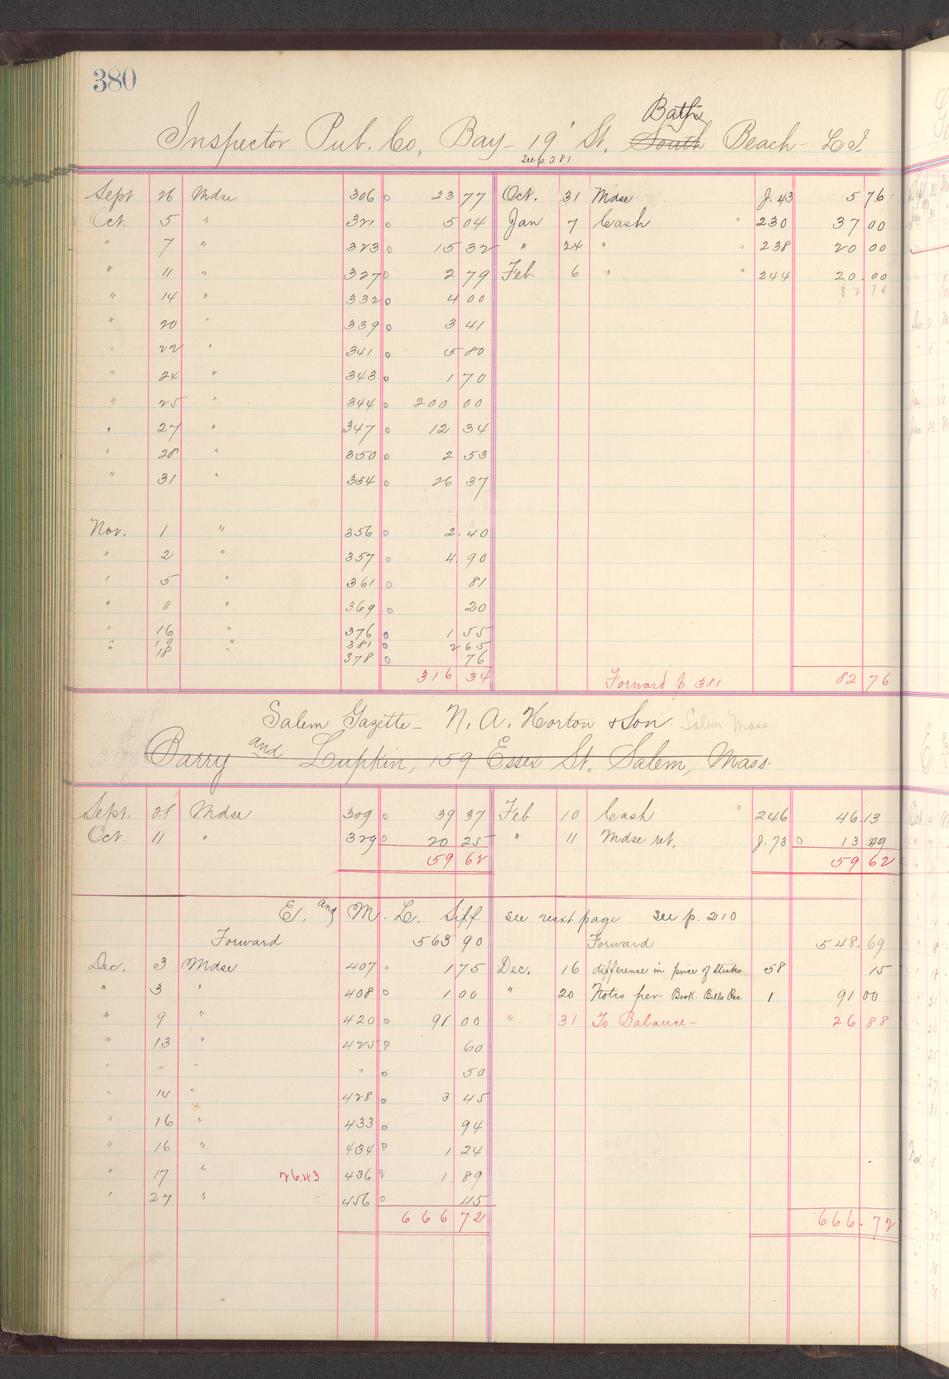 380
Bath
Inspector Pub. Co, Bay - 19" St. South Beach - L. I.
See p 381
Sept 26 Mdse 306 23 77 Oct. 31 Mdse J. 43 5 76
Oct. 5 " 321 5 04 Jan 7 Cash " 230 37 00
" 7 " 323 15 32 " 24 " " 238 20 00
" 11 " 327 2 79 Feb. 6 " " 244 20.00
" 14 " 332 4 00 82 76
" 20 " 339 3 41
" 22 " 341 5 80
" 24 " 343 1 70
" 25 " 344 200 00
" 27 " 347 12 34
" 28 " 350 2 53
" 31 " 354 26 37
Nov. 1 " 356 2.40
" 2 " 357 4.90
" 5 " 361 81
" 11 " 369 20
" 16 " 376 1 55
" 19 " 381 2 65
18 378 76
316 34 Forward p 381 82 76
Salem Gazette - N. A. Horton & Son Salem Mass.
Barry and Lupkin, 159 Essex St. Salem, Mass.
Sept. 28 Mdse 309 39 37 Feb 10 Cash " 246 46.13
Oct. 11 " 329 20 25 " 11 Mdse ret. J. 73 13 49
59 62 59 62
E. and M. L. Siff see next page see p. 210
Forward 563 90 Forward 548.69
Dec. 3 Mdse 407 1 75 Dec. 16 difference in price of sticks 58 15
" 3 " 408 1 00 " 20 Notes per Book. Bills Rec 1 91 00
" 9 " 420 91 00 " 31 To Balance - 26 88
" 13 " 425 60
" " " " 50
" 14 " 428 3 45
" 16 " 433 94
" 16 " 434 1 24
" 17 " 26.43 436 1.89
" 27 " 456 45
666 72 666.72